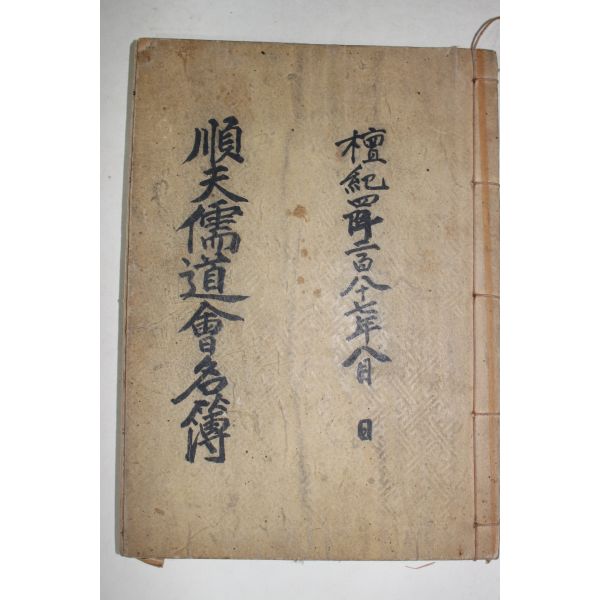 檀紀四阡二百八十七年八月 日
順天儒道會名簿